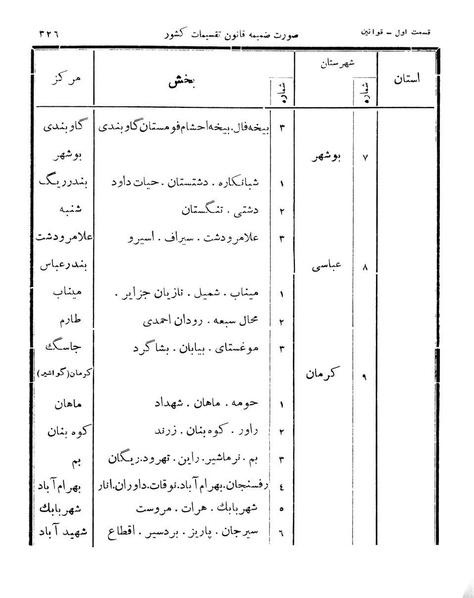 قسمت اول - قوانین صورت ضمیمه قانون تقسیمات کشور ۳۲۶
استان شماره شهرستان شماره بخش مرکز
۳ بیخه فال. بیخه احشام فومستان گاوبندی گاوبندی
۷ بوشهر بوشهر
۱ شبانکاره . دشتستان . حیات داود بندرریگ
۲ دشتی . تنگستان شنبه
۳ علامرودشت . سیراف . اسیرو علامرودشت
۸ عباسی بندرعباس
۱ میناب . شمیل . تازیان جزایر . میناب
۲ محال سبعه . رودان احمدی طارم
۳ موغستای . بیابان . بشاگرد جاسک
۹ کرمان کرمان(گواشیر)
۱ حومه . ماهان . شهداد ماهان
۲ راور . کوه بنان . زرند کوه بنان
۳ بم . نرماشیر. راین . تهرود. ریگان بم
٤ رفسنجان. بهرام آباد. نوقات. داوران. انار بهرام آباد
۵ شهربابك . هرات . مروست شهربابك
٦ سیرجان . پاریز . بردسیر . اقطاع شهید آباد